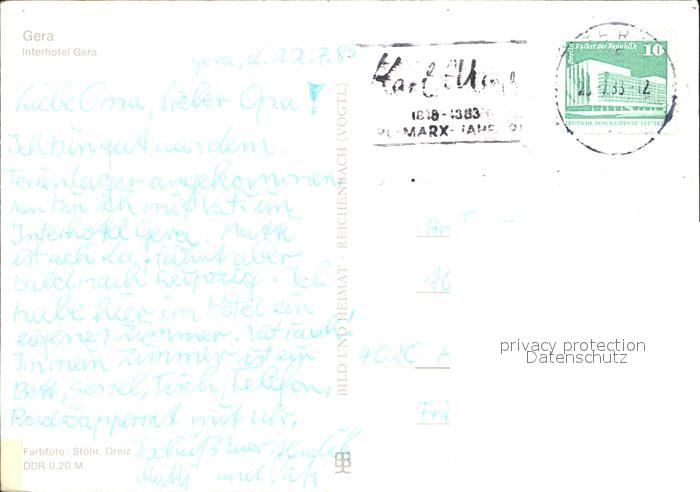 Gera
Interhotel Gera
Gera, d. 22.7.83
Liebe Oma, lieber Opa!
Ich bin gut aus dem
Ferienlager angekommen.
Nun bin ich mit Vati im
Interhotel Gera. Mutti
ist auch da, fährt aber
bald nach Leipzig. Ich
habe hier im Hotel ein
eigenes Zimmer. Vati auch!
In mein Zimmer ist ein
Bett, Sessel, Tisch, Telefon,
Radioapperrat mit Uhr.
Tschüß Euer
Mutti und Vati
Farbfoto: Stöhr, Greiz
DDR 0,20 M
BILD UND HEIMAT · REICHENBACH (VOGTL)
Karl Marx
1818-1883
KARL-MARX-JAHR
Berlin Palast der Republik
10
DEUTSCHE DEMOKRATISCHE REPUBLIK
An
4020 H
privacy protection
Datenschutz